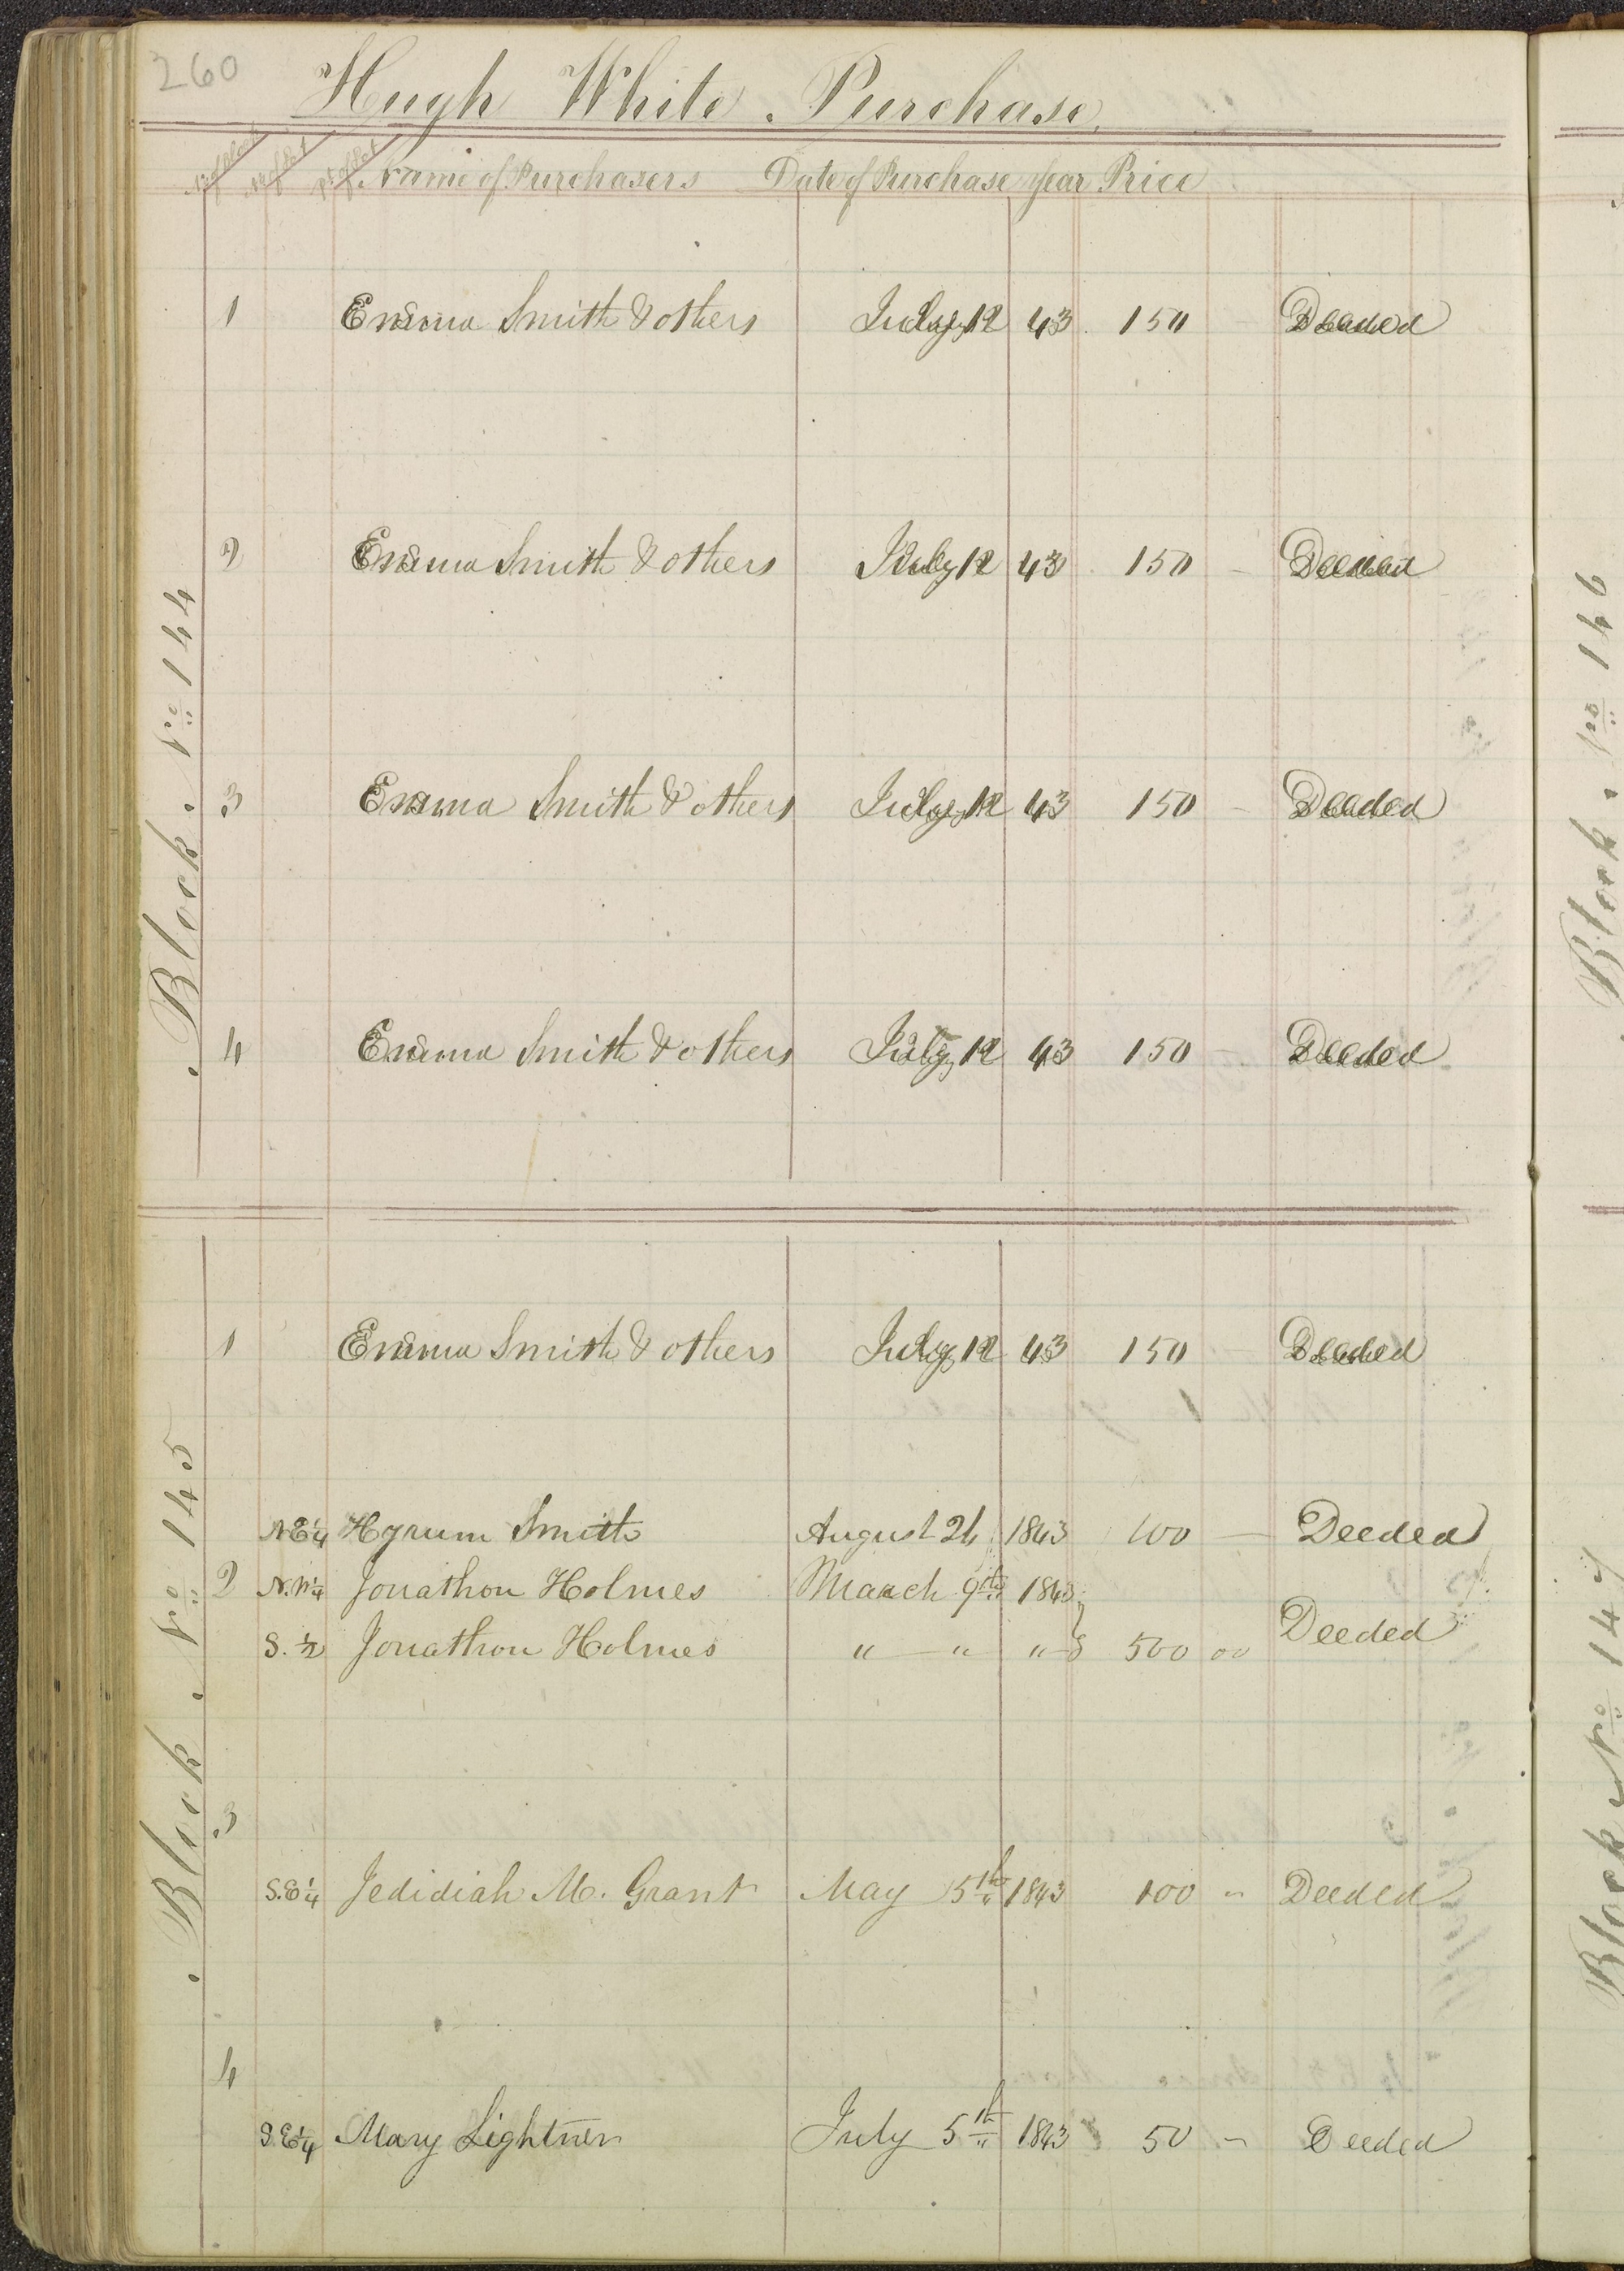 260
Hugh White. Purchase.
No of Block No of Lot Pt of Lot Name of Purchasers Date of Purchase year Price
Block. No 144
1 Emma Smith & others July 12 43 150 Deeded
2 Emma Smith & others July 12 43 150 – Deeded
3 Emma Smith & others July 12 43 150 – Deeded
4 Emma Smith & others July 12 43 150 – Deeded
Block. No 145
1 Emma Smith & others July 12 43 150 – Deeded
N.E 1/4 Hyrum Smith August 24 1843 100 — Deeded
2 N.W 1/4 Jonathon Holmes March 9th 1843
S. 1/2 Jonathon Holmes " — " " 500 00 Deeded
3
S.E 1/4 Jedidiah M. Grant May 5th 1843 100 " Deeded
4
S.E 1/4 Mary Lightner July 5th 1843 50 – Deeded
Block. No 146
Block No 147